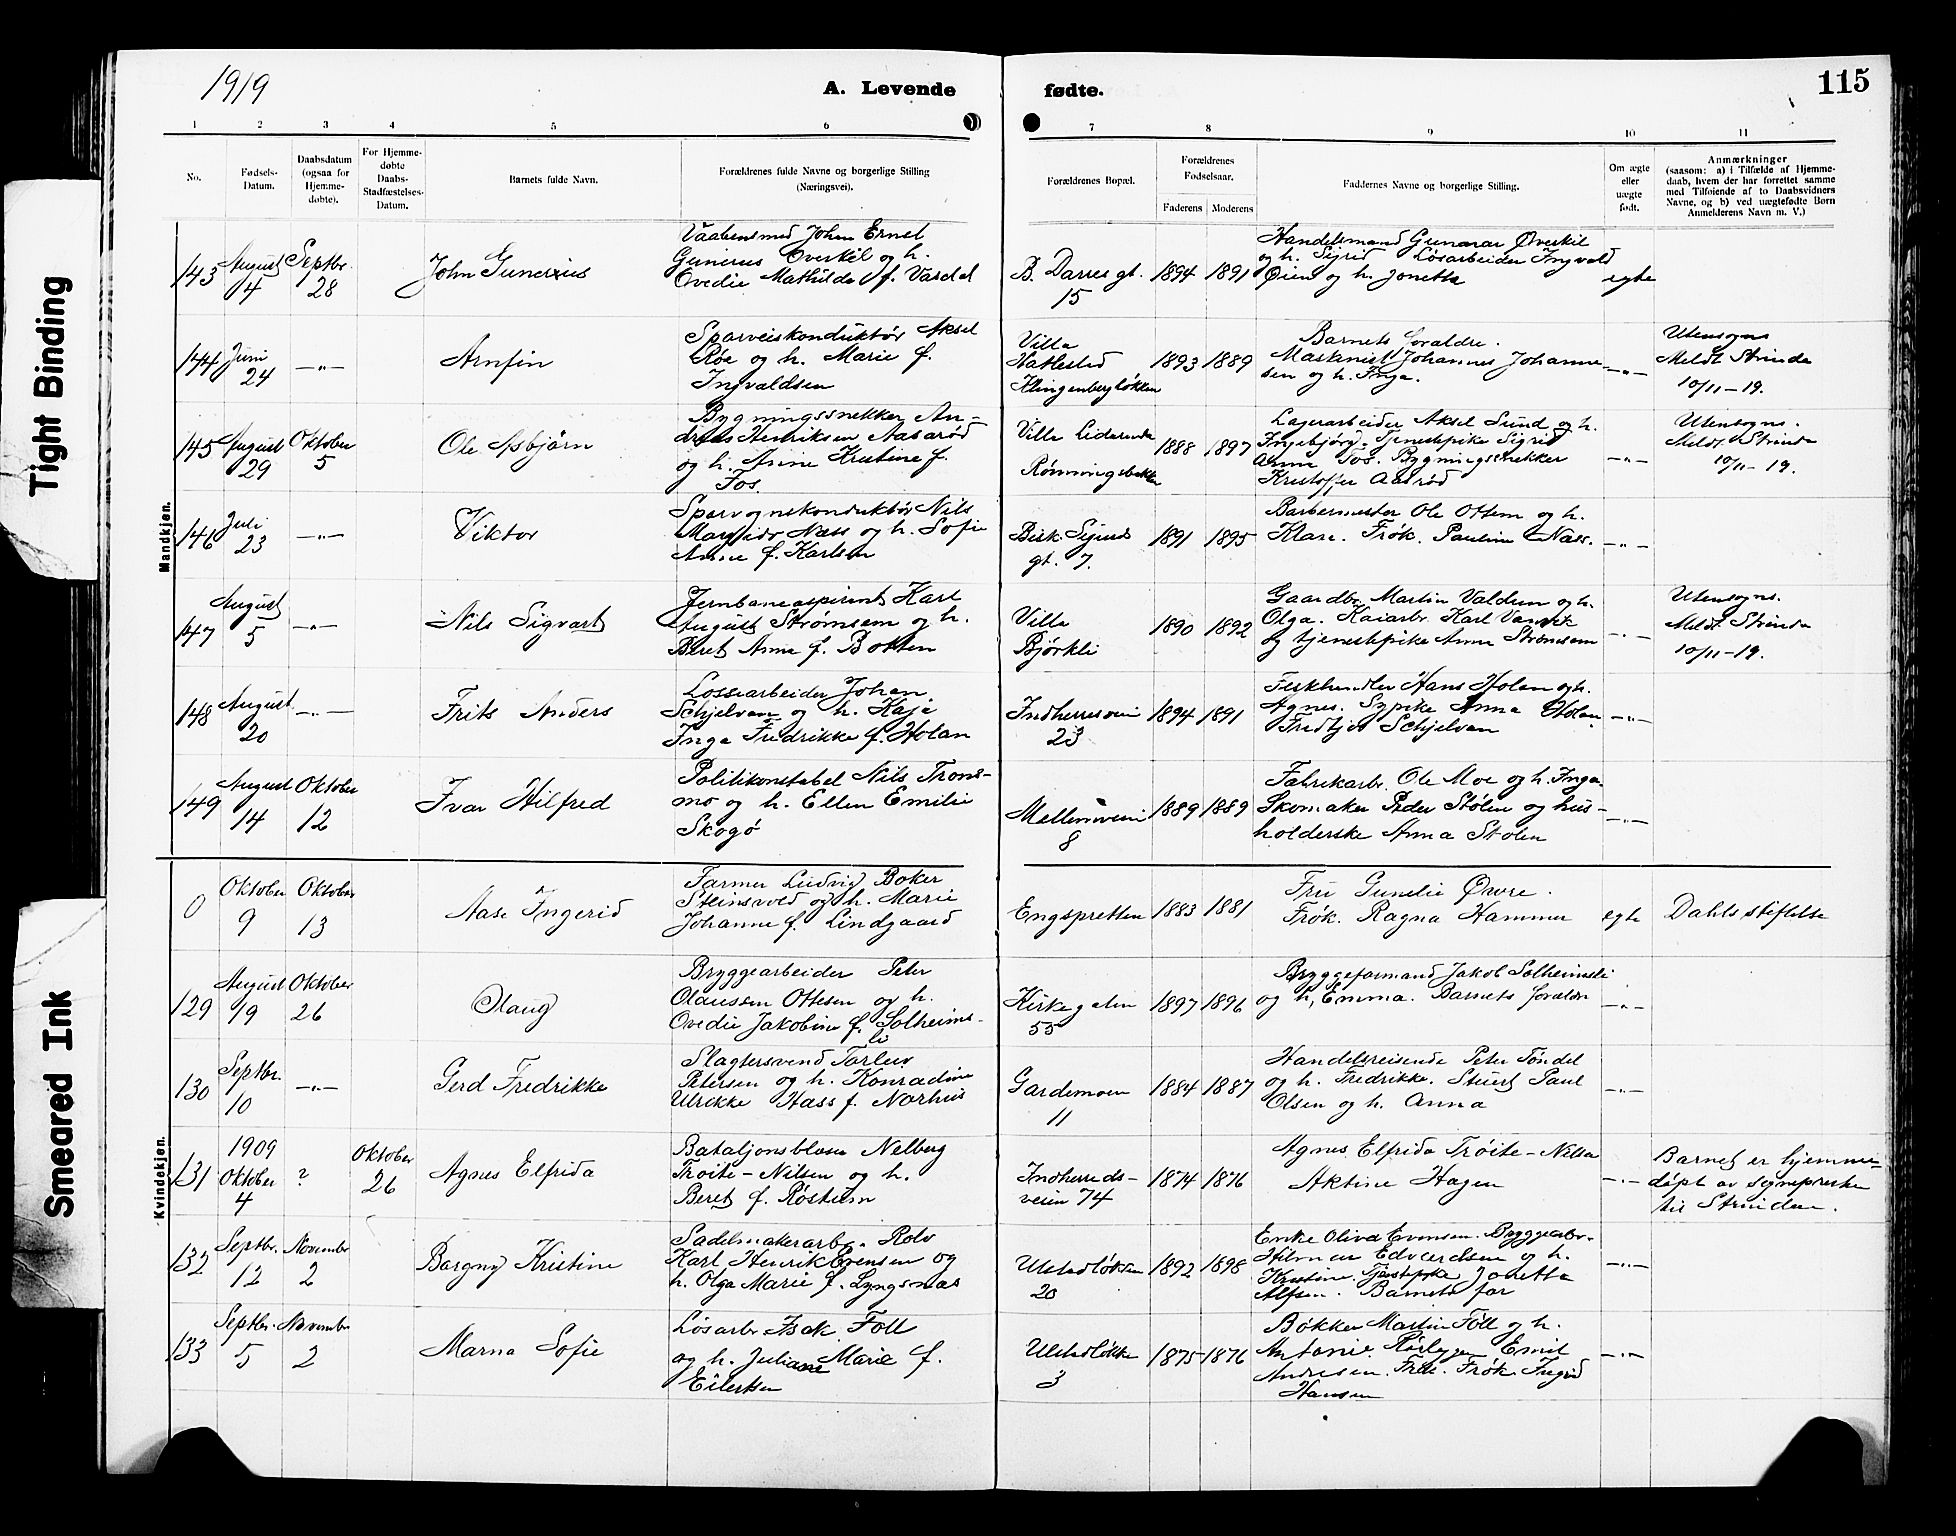 1919
A. Levende fødte.
115
Tight Binding
Smeared Ink
1 2 3 4 5 6 7 8 9 10 11
No.
Fødsels-
Datum.
Daabsdatum
(ogsaa for
Hjemme-
døbte).
For Hjemme-
døbte
Daabs-
Stadfæstelses-
Datum.
Barnets fulde Navn.
Forældrenes fulde Navne og borgerlige Stilling
(Næringsvei).
Forældrenes Bopæl.
Forældrenes
Fødselsaar.
Faderens Moderens
Faddernes Navne og borgerlige Stilling.
Om ægte
eller
uægte
født.
Anmærkninger
(saasom: a) i Tilfælde af Hjemme-
daab, hvem der har forrettet samme
med Tilføiende af to Daabsvidners
Navne, og b) ved uægtefødte Børn
Anmelderens Navn m. V.)
Mandkjøn.
143
August
4
Septbr.
28
John Gunerius
Vaabensmed Johan Ernst
Gunerus Overkil og h.
Ovedie Mathilde f. Vasdal
B. Darres gt.
15
1894 1891
Handelsmand Gunnar Øverkil
og h. Sigrid Løsarbeider Ingvald
Øien og h. Jonetta
egte
144
Juni
24
—"—
Arnfin
Sporveiskonduktør Aksel
Røe og h. Marie f.
Ingvaldsen
Villa
Hatlestad
Klingenbergløkken
1893 1889
Barnets foraldre.
Maskinist Johannes Johanne-
sen og h. Inga.
—"—
Utensogns
Meldt Strinda
10/11-19.
145
August
29
Oktober
5
Ole Asbjørn
Bygningssnekker An-
dreas Henriksen Aasarød
og h. Anne Kristine f.
Fos
Villa
Rønningsbakken
1888 1897
Lagerarbeider Aksel Sund og h.
Ingebjørg. Tjenestpike Sigrid
Anna Fos. Bygningssnekker
Kristoffer Aasrød
—"—
Utensogns.
Meldt Strinda
10/11-19.
146
Juli
23
—"—
Viktor
Sporvognskonduktør Nils
Næss og h. Sofie
Anna f. Karlsen
Bisk. Sigurds
gt. 7.
1891 1895
Barbermester Ole Ottem og h.
Klara. Frøk. Pauline Næss.
—"—
147
August
5
—"—
Nils Sigvart
Jernbaneaspirant Karl
August Strømsem og h.
Beret Anna f. Botten
Villa
Bjørkli
1890 1892
Gaardbr. Martin Valdum og h.
Olga. Kaiarbr. Karl
og tjenestepike Anna Strømsem
—"—
Utensogns.
Meldt Strinda
10/11-19.
148
August
20
—"—
Frits Anders
Lossearbeider Johan
Schjelvan og h. Kaja
Inga Fredrikke f. Holan
Indherresveien
23
1894 1891
Fiskhandler Hans Holan og h.
Agnes. Sypike Anna Holan
Fredtjof Schjelvan
—"—
149
August
14
Oktober
12
Ivar Hilfred
Politikonstabel Nils Trons-
mo og h. Ellen Emilie
Skogø
Mellemveien
8
1889 1889
Fabrikarbr. Ole Moe og h. Inga.
Skomaker Peder Stølen og hus-
holderske Anna Stølen
—"—
Kvindekjøn.
0
Oktober
9
Oktober
13
Aase Ingerid
Farmer Ludvig Boker
Steinsvold og h. Marie
Johanne f. Lindgaard
Engspretten
1883 1881
Fru Gunelie Øvre.
Frøk. Ragna Hammer
egte
Dahls stiftelse
129
August
19
Oktober
26
Olaug
Bryggearbeider Peter
Olaussen Ottesen og h.
Ovedie Jakobine f. Solheims-
li
Kirkegaten
55
1897 1896
Bryggeformand Jakob Solheimsli
og h, Emma. Barnets foraldre
—"—
130
Septbr.
10
—"—
Gerd Fredrikke
Slagtersvend Torleiv
Petersen og h. Konradine
Ulrikke Hass f. Norhus
Gardemoen
11
1884 1887
Handelsreisende Peter Tøndel
og h. Fredrikke. Stuert Paul
Olsen og h. Anna
—"—
131
1909
Oktober
4
?
Oktober
26
Agnes Elfrida
Bataljonsblæser Nelberg
Trøite-Nilsen og h.
Beret f. Røstum
Indherreds-
veien 74
1874 1876
Agnes Elfrida Trøite-Nilsen
Aktine Hagen
—"—
Barnet er hjemme-
døpt av sogneprestn
til Strinden.
132
Septbr.
12
November
2
Borgny Kristine
Sadelmakerarb. Rolv
Karl Henrik Evensen og
h. Olga Marie f. Lyngsnæs
Ulstadløkken
20
1892 1898
Enke Oliva Evensen. Bryggearbr.
Hilmar Edvardsen og h.
Kristine. Tjenestpike Jonetta
Alfsen. Barnets far
—"—
133
Septbr.
5
November
2
Marna Sofie
Løsarbr Isak Foll
og h. Juliane Marie f.
Eilertsen
Ulstadløkke
3
1875 1876
Bøkker Martin Foll og h.
Antonie. Rørlegger Emil
Andresen. Frøk. Ingrid
Hansen
—"—